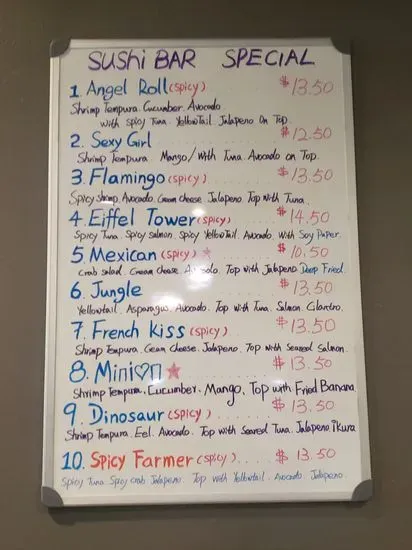 SUSHi BAR SPECIAL
1. Angel Roll (spicy) $13.50
Shrimp Tempura. Cucumber. Avocado.
with Spicy Tuna. YellowTail. Jalapeno On Top.
2. Sexy Girl $12.50
Shrimp Tempura Mango/With Tuna. Avocado on Top.
3. Flamingo (spicy) $13.50
Spicy Shrimp. Avocado. Cream cheese Jalapeno Top with Tuna.
4. Eiffel Tower (spicy) $14.50
Spicy Tuna. Spicy salmon. Spicy YellowTail. Avocado. With Soy Paper.
5. Mexican (spicy) $10.50
Crab Salad. Cream cheese. Avocado. Top with Jalapeno Deep Fried.
6. Jungle $13.50
Yellowtail. Asparagus. Avocado. Top with Tuna. Salmon. Cilantro.
7. French kiss (spicy) $13.50
Shrimp Tempura. Cream Cheese. Jalapeno. Top with Seared Salmon.
8. Mini $13.50
Shrimp Tempura. Cucumber. Mango, Top with Fried Banana
9. Dinosaur (spicy) $13.50
Shrimp Tempura. Eel. Avocado. Top with Seared Tuna. Jalapeno. ikura
10. Spicy Farmer (spicy) $13.50
Spicy Tuna Spicy crab Jalapeno. Top with Yellowtail. Avocado. Jalapeno.